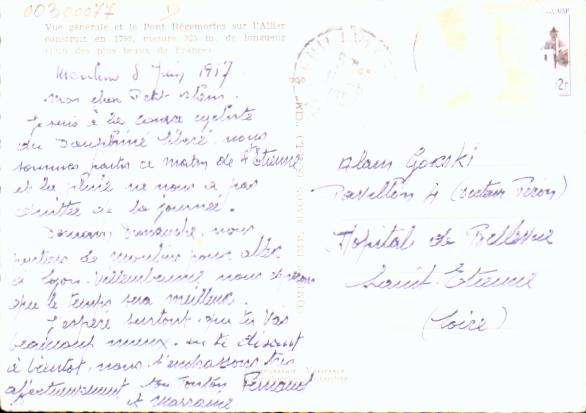 00300077
Vue générale et le Pont Régemortes sur l'Allier
construit en 1750, mesure 325 m. de longueur
(l'un des plus beaux de France)
Moulins 8 Juin
Mon cher Petit Alain.
Je suis à la course cycliste
du Dauphiné Libéré, nous
sommes partis ce matin de St Etienne
et la pluie ne nous a pas
quittée de la journée.
Demain Dimanche, nous
partons de moulins pour aller
à Lyon-Villeurbanne nous
que le temps sera meilleur.
J'espère surtout que tu vas
beaucoup mieux. en te disant
à bientôt, nous t'embrassons très
affectueusement ton Tonton Fernand
et marraine
IMP. MACON (S.-&-L.) "CIM"
Alain Gorski
Pavillon 4 (secteur Péron)
Hopital de Bellevue
Saint-Etienne
(Loire)